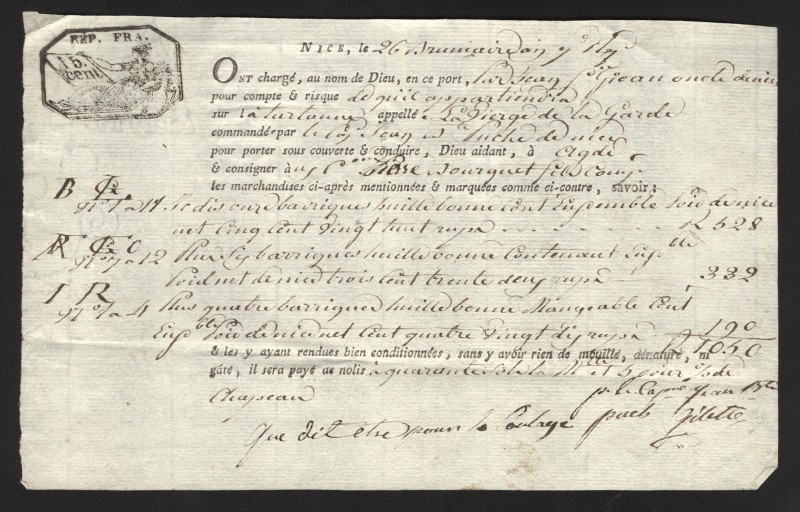 RÉP. FRA.
15.
cent.
NICE, le 26 Brumaire an 9
ONT chargé, au nom de Dieu, en ce port, Jean
pour compte & risque de qu'il appartiendra
sur la tartanne appellée La Vierge de la Garde
commandée par le Cap. Jean de nice
pour porter sous couverte & conduire, Dieu aidant, à Agde
& consigner à fils Comp.
les marchandises ci-après mentionnées & marquées comme ci-contre, savoir :
N° 1 a 11 Je dis onze barriques huille bonne Cont. Ensemble Poid de nice
net Cinq Cent Vingt huit rups 528
N° 7 a 12 Plus Six barriques huille bonne Contenant Ens.ble
Poid net de nice trois Cent trente deux rups 332
I R
N° 1 a 4 Plus quatre barriques huille bonne Mangeable Cont.
Ens.ble Poid de nice net Cent quatre Vingt dix rups 190
1050
& les y ayant rendues bien conditionnées, sans y avoir rien de mouillé, dénaturé, ni
gâté, il sera payé de nolis à quarante de la et 5 pour % de
Chapeau p. le Cap.ne Jean B.te
Que dit être pour le